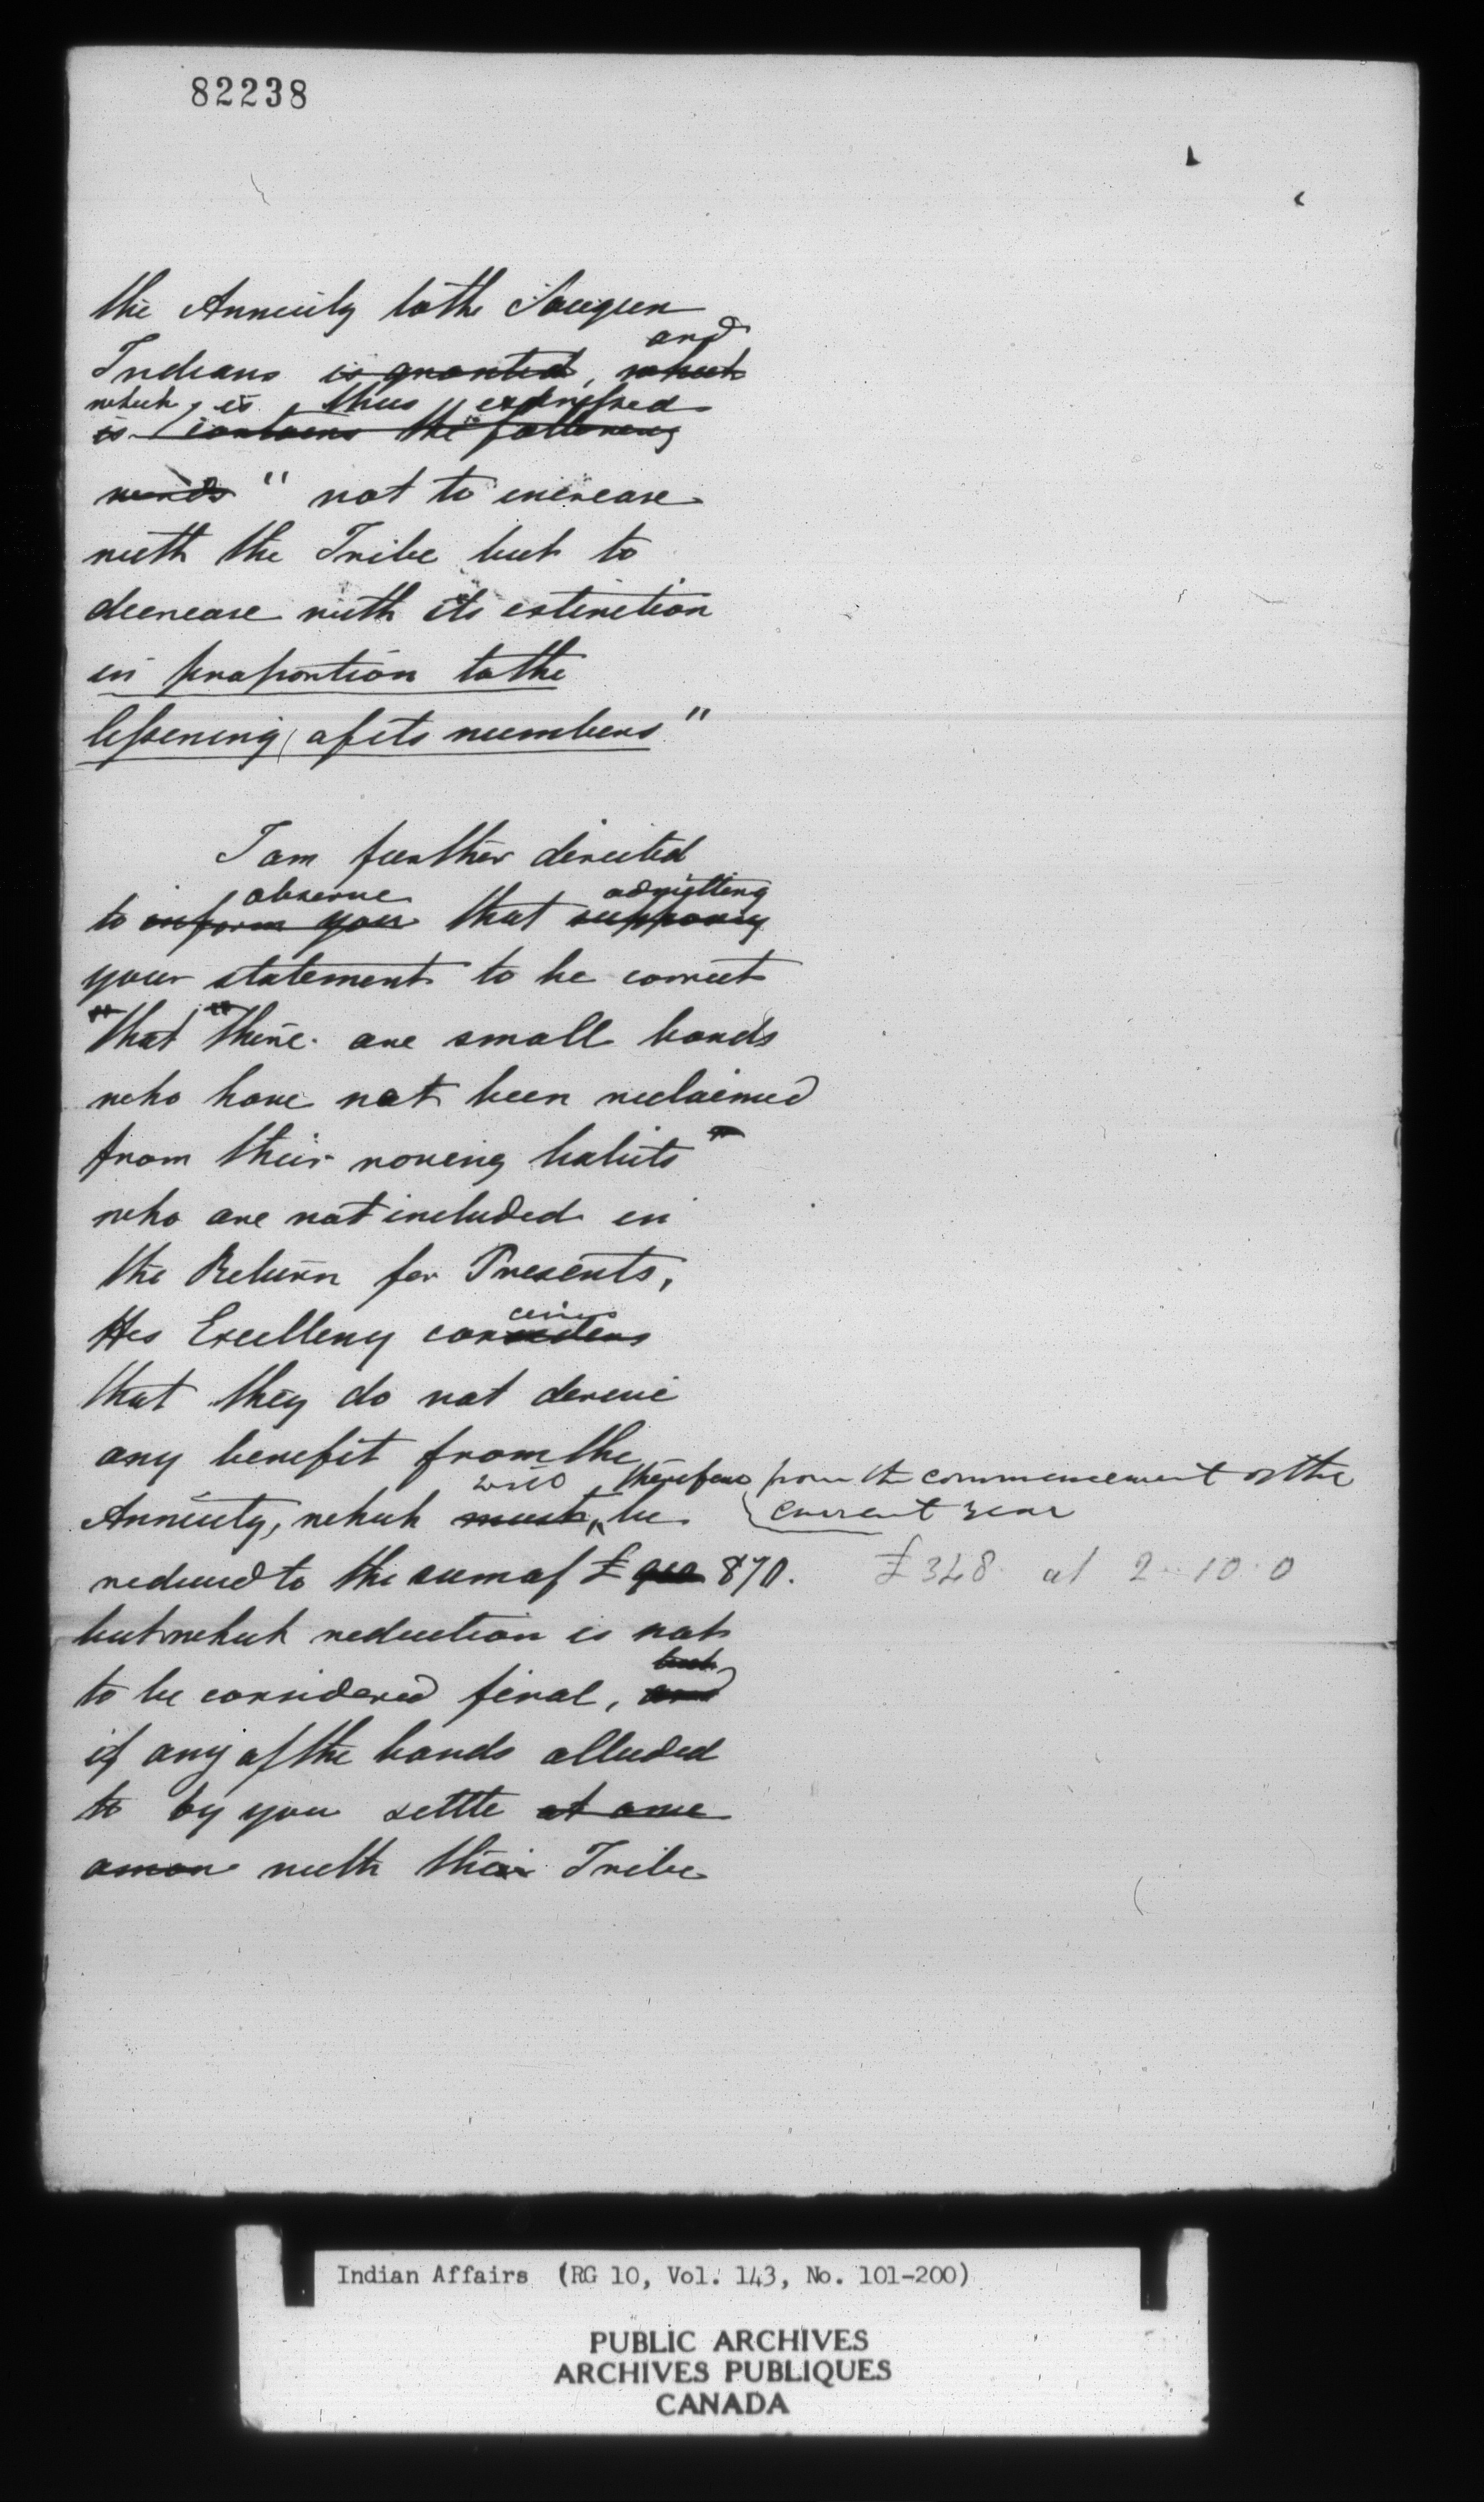 82238
the Annuity to the Saugeen
and
Indians is granted, which
which is thus expressed
is contains the following
words " not to increase
with the Tribe but to
decrease with its extinction
in proportion to the
lessening of its numbers"
I am further directed
observe admitting
to inform you that supposing
your statement to be correct
"that "there are small bands
who have not been reclaimed
from their roving habits"
who are not included in
the Return for Presents,
ceives
His Excellency considers
that they do not derive
any benefit from the
will therefore from the commencement of the
Annuity, which must, be current year
reduced to the sum of £ 870. £348 at 2..10.0
but which reduction is not
but
to be considered final, and
if any of the bands alluded
to by you settle at once
among with their Tribe
Indian Affairs (RG 10, Vol. 143, No. 101-200)
PUBLIC ARCHIVES
ARCHIVES PUBLIQUES
CANADA